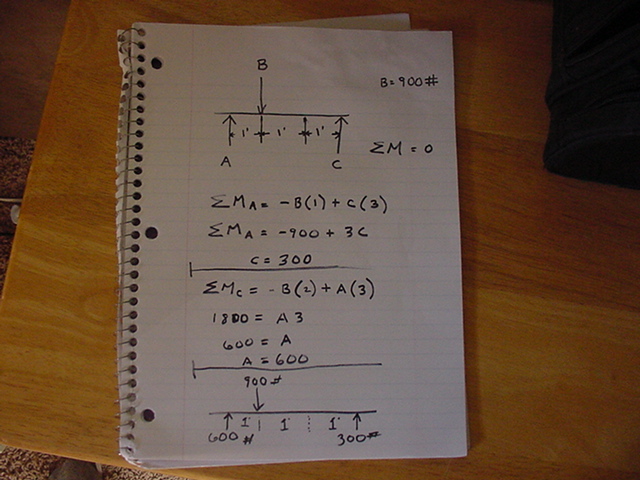 B
B = 900#
1' 1' 1'
A C
ΣM = 0
ΣM_A = -B(1) + C(3)
ΣM_A = -900 + 3C
C = 300
ΣM_C = -B(2) + A(3)
1800 = A3
600 = A
A = 600
900#
1' 1' 1'
600# 300#